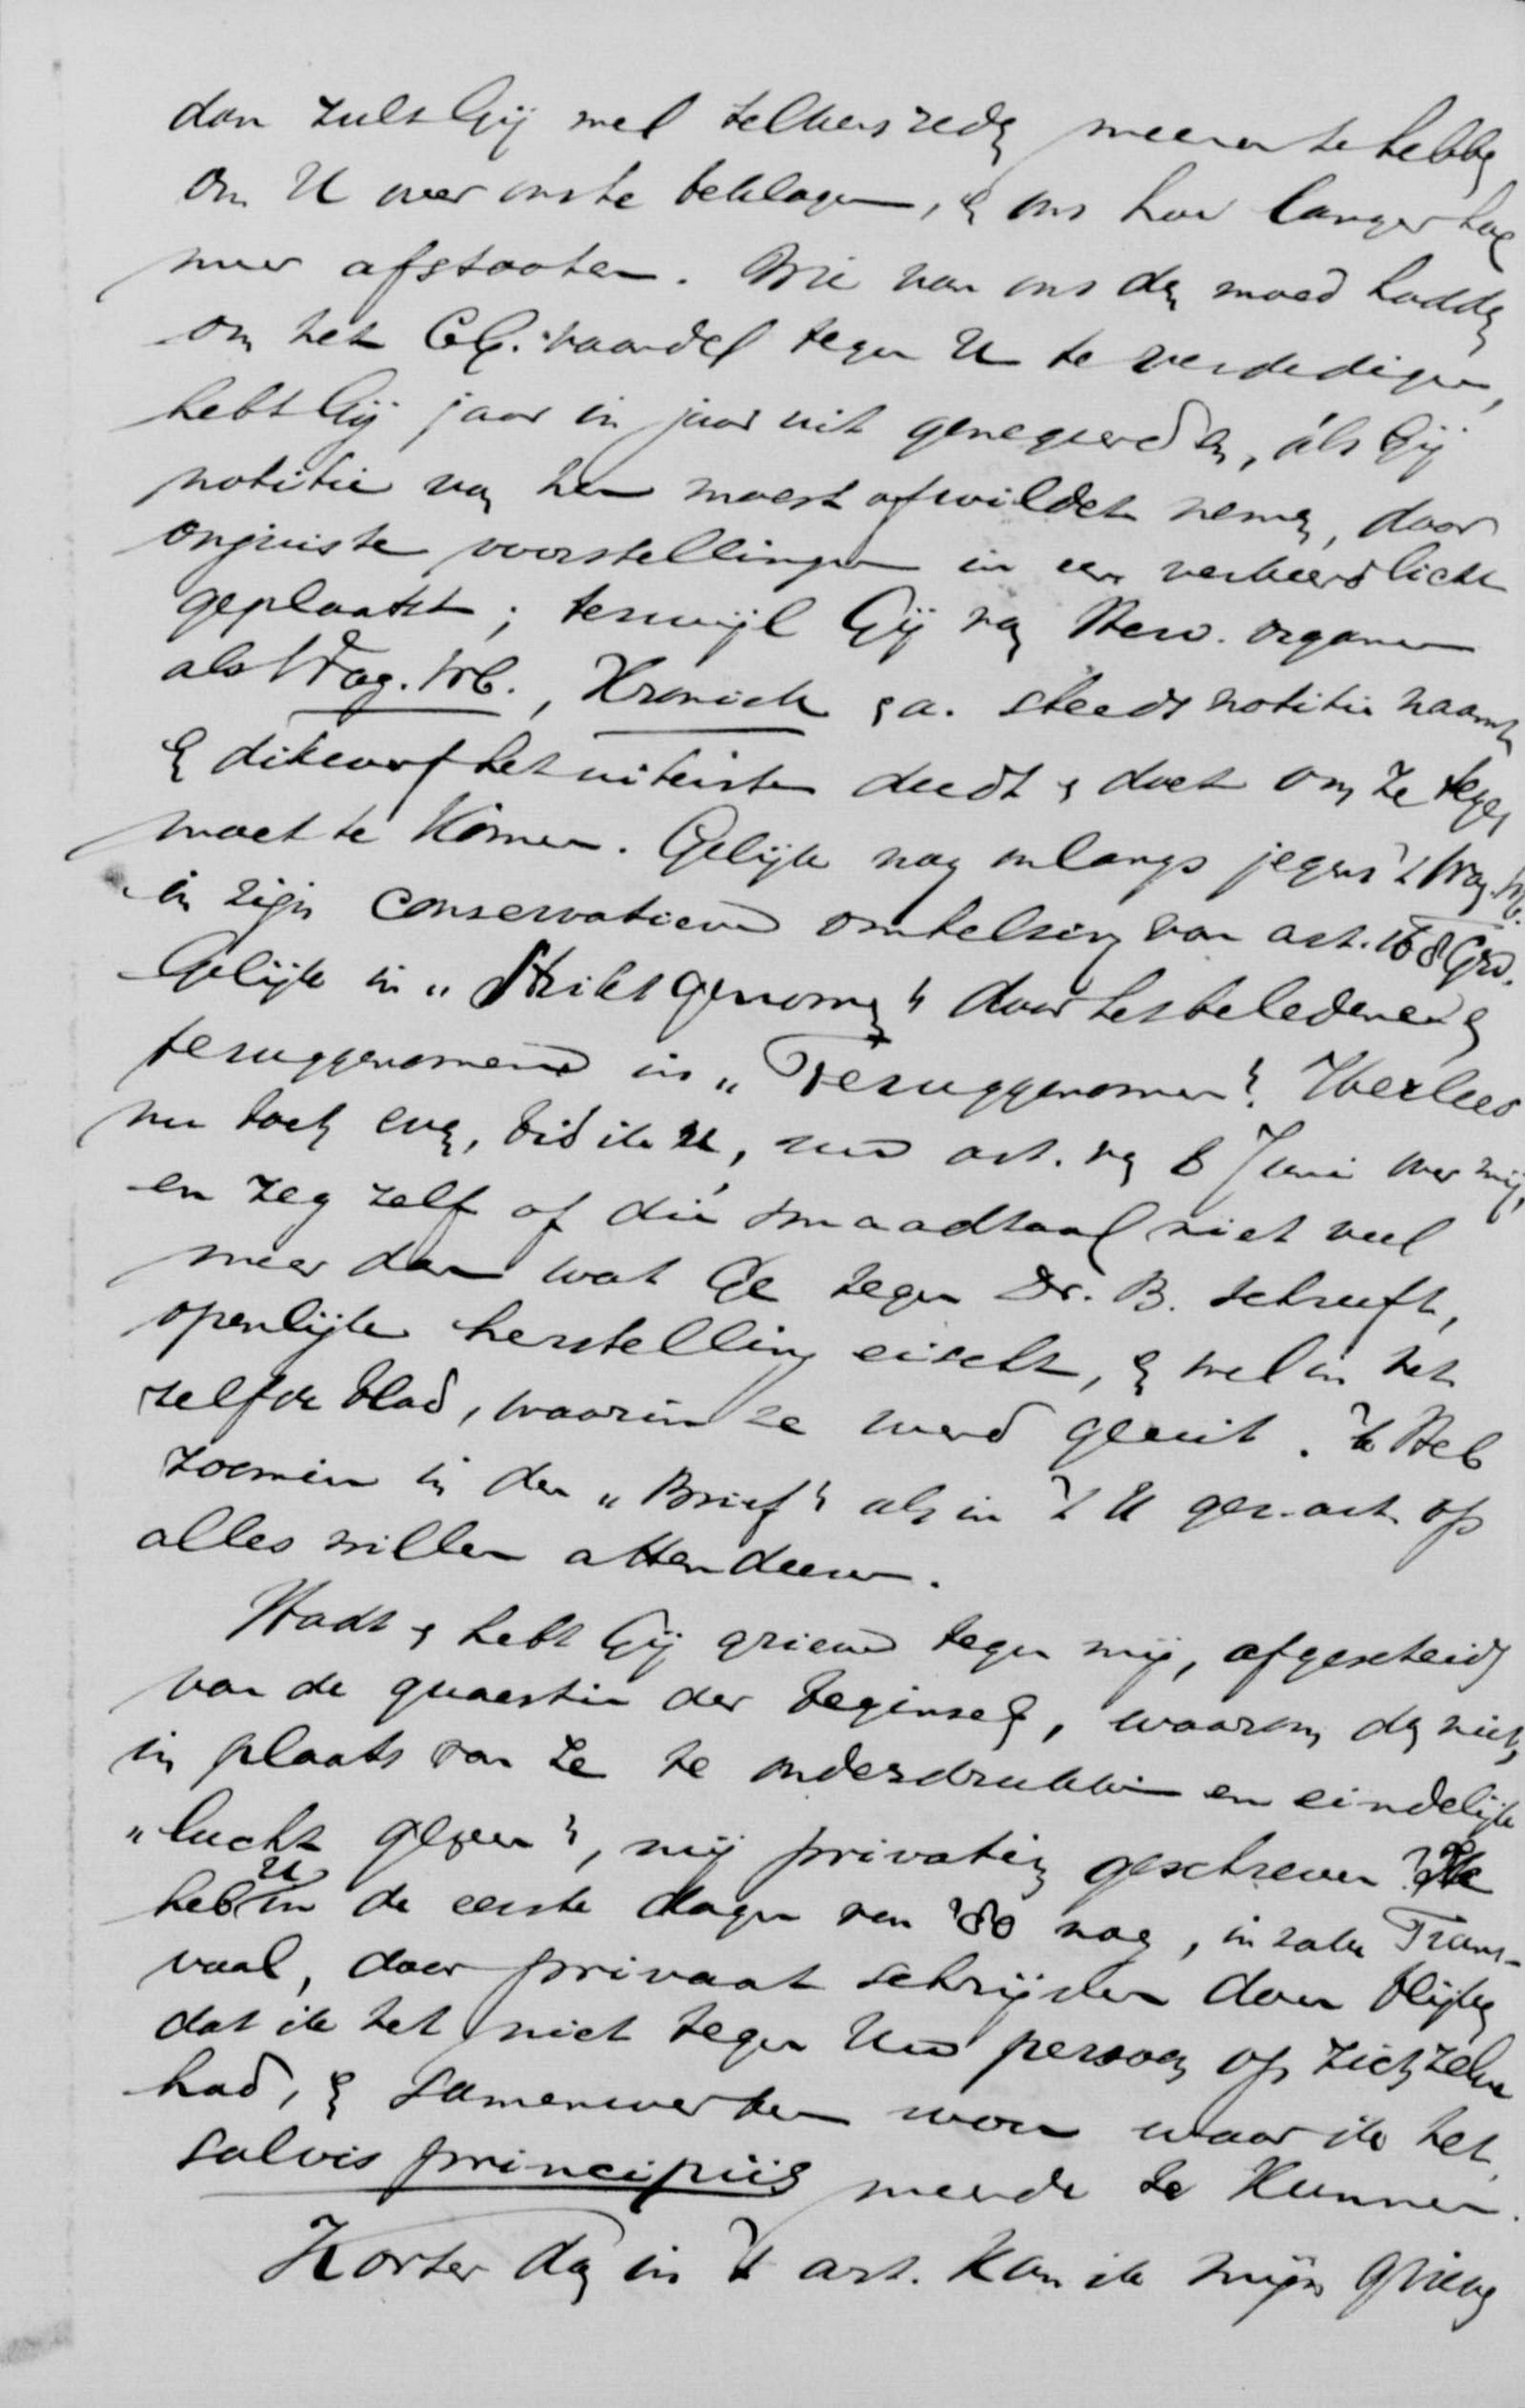 dan zult Gij wel telkens reden meenen te hebben
om U over ons te beklagen, en ons hoe langer hoe
meer afstooten. Wie van ons den moed hadden
om het C.G. vaandel tegen U te verdedigen,
hebt Gij jaar in jaar uit genegeerd en, áls Gij
notitie van hen moest of wildet nemen, door
onjuiste voorstellingen in een verkeerd licht
geplaatst; terwijl Gij van Herv. organen
als Wag. Wb., Kroniek e. a. steeds notitie naamt
en dikwerf het uiterste deedt en doet om ze tege-
moet te komen. Gelijk nog onlangs jegens 't Wag. Wb.
in zijn conservatieve omhelzing van art. 168 Grw.
Gelijk in „Strikt genomen" door het beledene en
teruggenomene in „Teruggenomen". Herlees
nu toch eens, bid ik U, uw art. van 6 Juni over mij,
en zeg zelf of dié smaadtaal niet veel
meer dan wat Ge tegen Dr. B. schreeft,
openlijke herstelling eischt, en wel in het-
zelfde blad, waarin ze werd geuit. 'k Heb
zoomin in den „Brief" als in 't U gez. art. op
alles willen attendeeren.
Hadt en hebt Gij grieven tegen mij, afgescheiden
van de quaestie der beginselen, waarom dan niet,
in plaats van ze te onderdrukken en eindelijk
„lucht geven", mij privatim geschreven? Ik
heb U in de eerste dagen van '80 nog, in zake Trans-
vaal, door privaat schrijven doen blijken
dat ik het niet tegen Uw persoon op zichzelve
had, en samenwerken wou waar ik het,
salvis principiis meende te kunnen.
Korter dan in 't art. kan ik mijn grieven